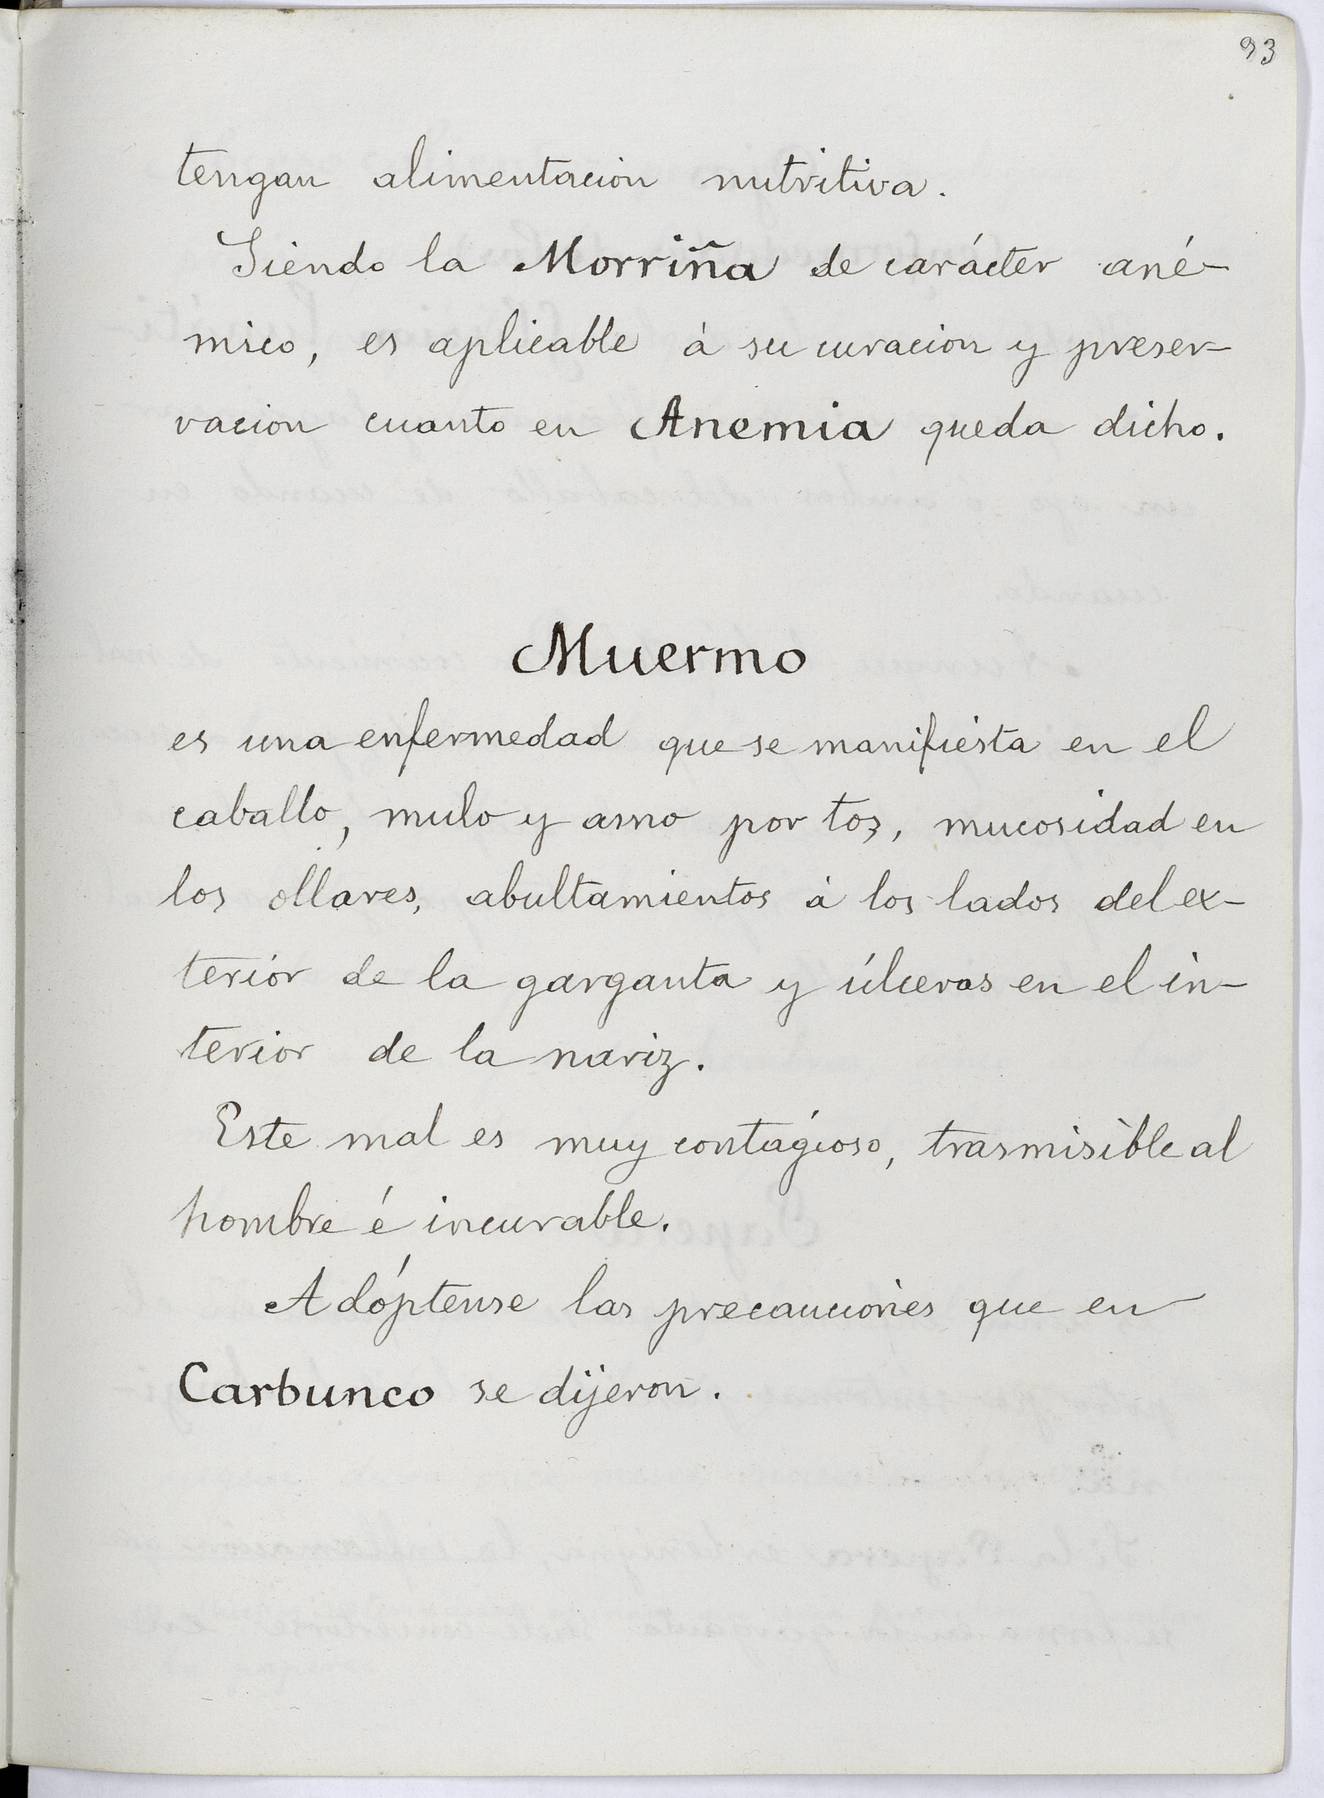 93
tengan alimentacion nutritiva.
Siendo la Morriña de carácter ané-
mico, es aplicable á su curacion y preser-
vacion cuanto en Anemia queda dicho.
Muermo
es una enfermedad que se manifiesta en el
caballo, mulo y asno por tos, mucosidad en
los ollares, abultamientos á los lados del ex-
terior de la garganta y úlceras en el in-
terior de la nariz.
Este mal es muy contagioso, trasmisible al
hombre é incurable.
Adóptense las precauciones que en
Carbunco se dijeron.